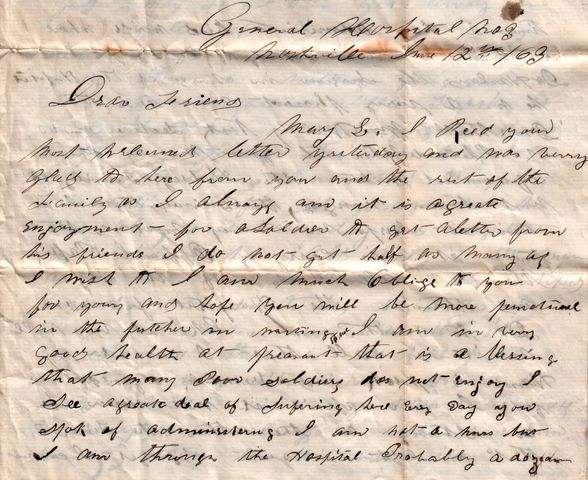 General Hospital No 3
Nashville June 12th /63
Dear Friend
Mary E. I Recd your
most welcomed letter yesterday and was verry
glad to here from you and the rest of the
Family as I always am it is a greate
enjoyment for a Soldier to get a letter from
his friends I do not get half as many as
I wish to I am much Oblige to you
for yours and hope you will be more punctual
in the futcher in writing I am in very
good health at presant that is a blessing
that many Poor soldiers does not enjoy I
See a greate deal of Suffering here Every Day you
Spok of administering I am not a nurs but
I am through the Hospital Probably a dozen